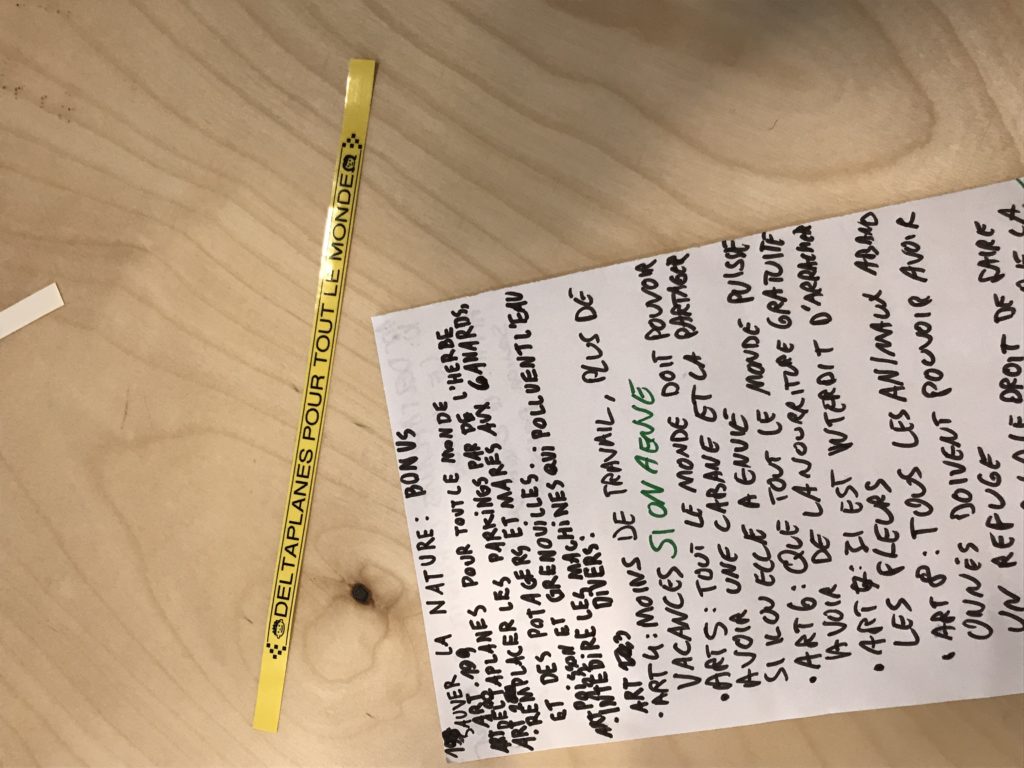 DELTAPLANES POUR TOUT LE MONDE
SAUVER LA NATURE: BONUS
ART.199 POUR TOUT LE MONDE
DELTAPLANES
REMPLACER LES PARKINGS PAR DE L'HERBE
ET DES POTAGERS ET MARES AUX CANARDS,
POISSON ET GRENOUILLES.
INTERDIRE LES MACHINES QUI POLLUENT L'EAU
DIVERS:
ART
• ART 4: MOINS DE TRAVAIL, PLUS DE
VACANCES SI ON A ENVIE
• ART 5: TOUT LE MONDE DOIT POUVOIR
AVOIR UNE CABANE ET LA PARTAGER
SI IL OU ELLE A ENVIE
• ART 6: QUE TOUT LE MONDE PUISSE
AVOIR DE LA NOURRITURE GRATUITE
• ART 7: IL EST INTERDIT D'ARRACHER
LES FLEURS
• ART 8: TOUS LES ANIMAUX ABAND
ONNÉS DOIVENT POUVOIR AVOIR
UN REFUGE
LE DROIT DE